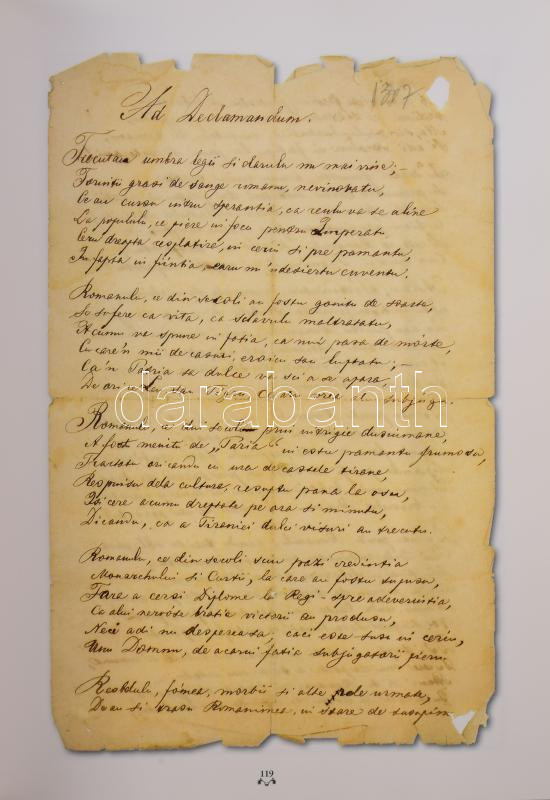 1387
Ad Declamandum.
umbra legii si darulu nu mai vine; –
Torintii grasi de sange umanu, nevinovatu,
Ce au cursu intru sperantia, ca reulu va se aline
La populu, ce piere in focu pentru Imperatu
Ceru drepta resplatire, in ceriu si pre pamantu,
In fapta in fiintia, caru m'ndesiertu cuventu.
Romanulu, ce din secoli au fostu gonitu de soarta,
So sufere ca vita, ca sclavulu maltratatu,
Acumu va spune in fatia, ca nui pasa de mórte,
Cu care'n mii de casuri, eroicu sau luptatu; –
Ca'n Patria sa dulce va sci a se apara
De ori
darabanth
Romanulu, ce din secoli prin intrigue dusumane,
A fost menitu de „Paria" in estu pamantu frumosu,
Tractatu oricandu cu ura de castele tirane,
Respinsu dela cultura, resuptu pana la osu,
Isi cere acumu dreptate pe ora si minutu,
Dicandu, ca a Tiraniei dulci visuri au trecutu.
Romanulu, ce din secoli sciu pazi credintia
Monarchului si Curtii, la care au fostu supusu,
Fara a cersi Diplome la Regi – spre adeverintia,
Ca alui nervóse bratie victorii au produsu,
Neci adi nu despereasa, caci este susu in ceriu,
Unu Domnu, de a carui fatia subjugatorii pieru
Resbelulu, fómea, morbii si alte rele urmate,
De au si
119